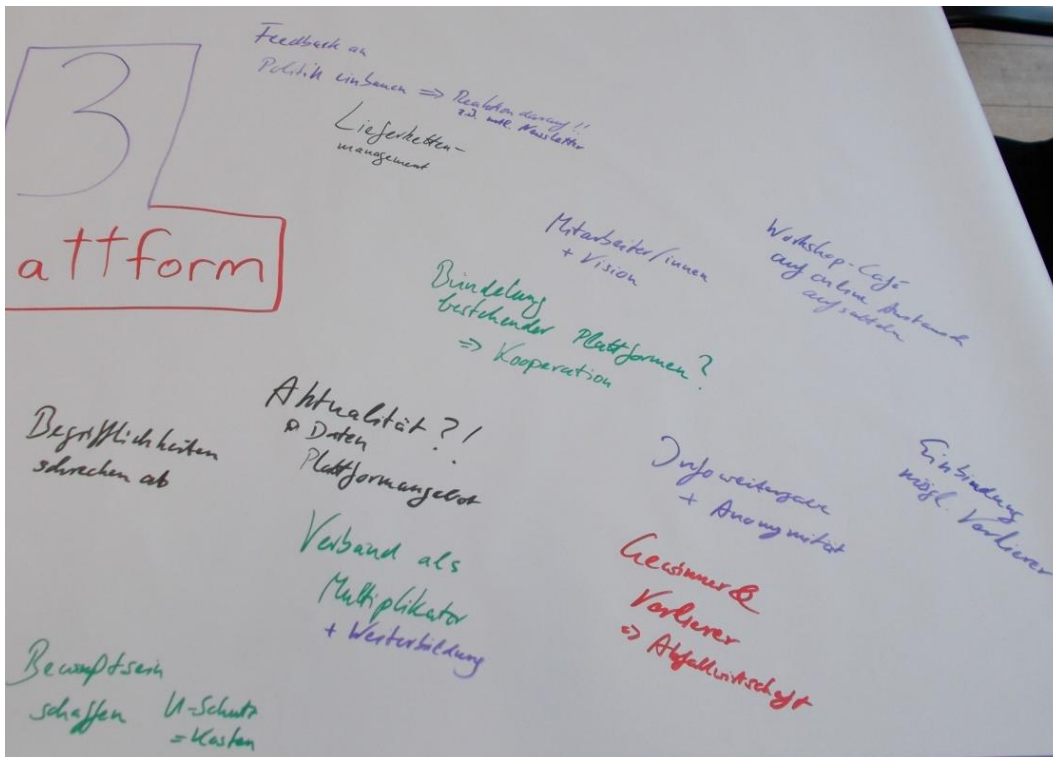 3
attform
Feedback an
Politik einbauen => Reaktion darauf!!
z.B. mtl. Newsletter
Lieferketten-
management
Mitarbeiter/innen
+ Vision
Workshop-Café
auf online Austausch
aufsatteln
Bündelung
bestehender Plattformen?
=> Kooperation
Aktualität?!
Daten
Plattformangebot
Begrifflichkeiten
schrecken ab
Infoweitergabe
+ Anonymität
Einbindung
mögl. Verlierer
Verband als
Multiplikator
+ Weiterbildung
Gewinner &
Verlierer
=> Abfallwirtschaft
Bewußtsein
schaffen
U-Schutz
= Kosten